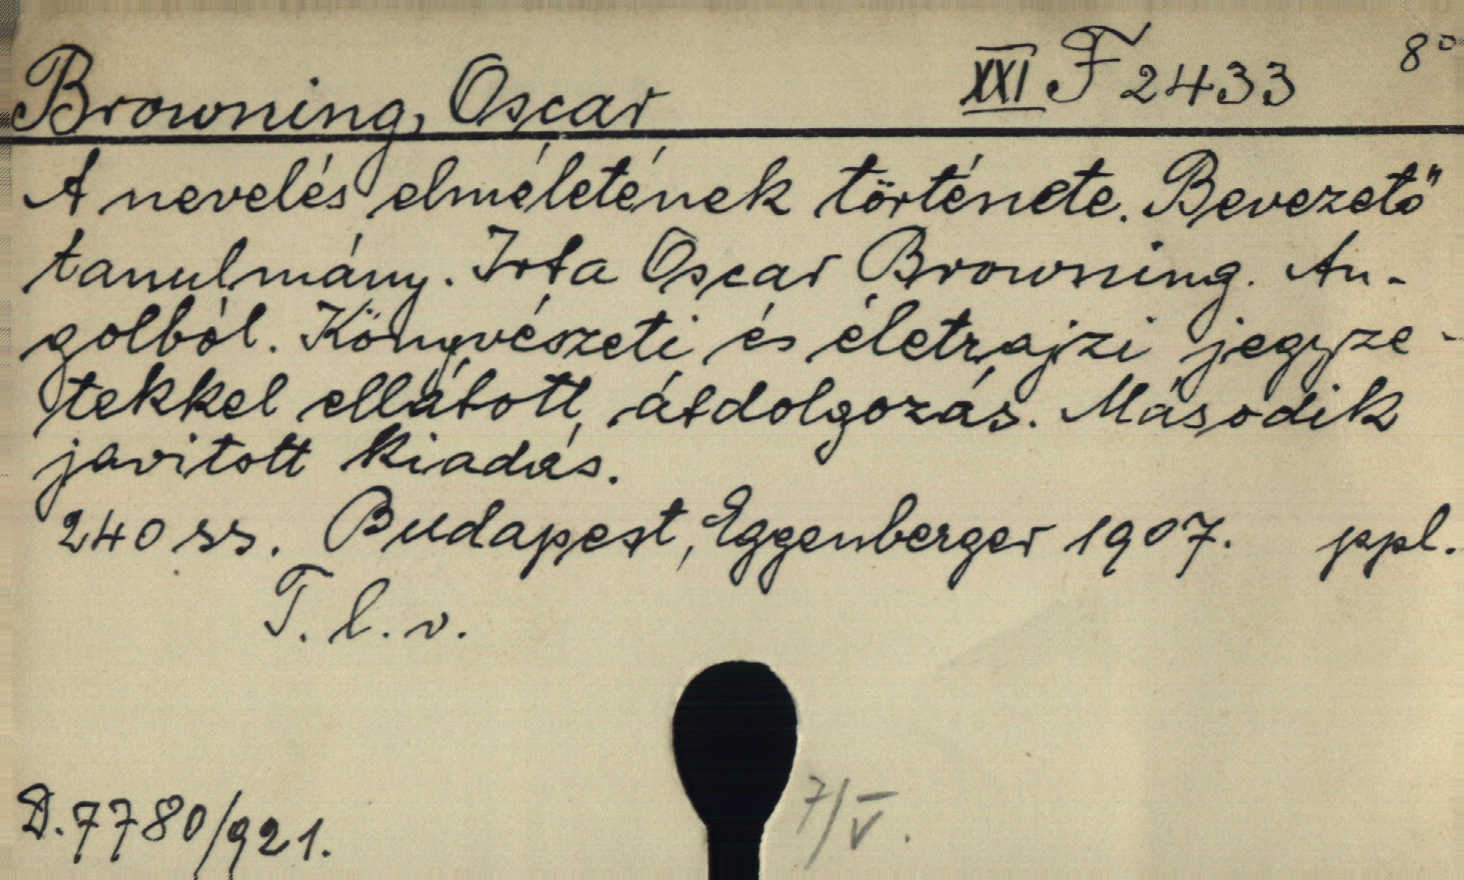 Browning, Oscar XXI F 2433 8°
A nevelés elméletének története. Bevezető
tanulmány. Irta Oscar Browning. An-
golból. Könyvészeti és életrajzi jegyze-
tekkel ellátott, átdolgozás. Második
javitott kiadás.
240 ss. Budapest, Eggenberger 1907. ppl.
T. l. v.
D. 7780/921. 7/V.